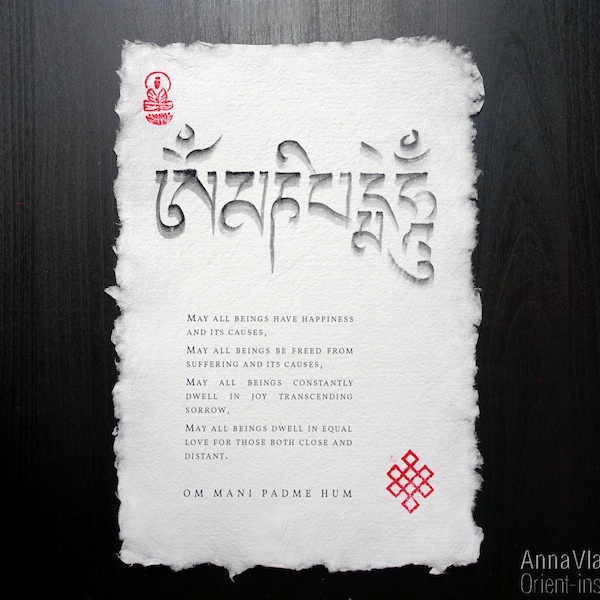 ཨོཾམཎིཔདྨེཧཱུྃ
MAY ALL BEINGS HAVE HAPPINESS
AND ITS CAUSES,
MAY ALL BEINGS BE FREED FROM
SUFFERING AND ITS CAUSES,
MAY ALL BEINGS CONSTANTLY
DWELL IN JOY TRANSCENDING
SORROW,
MAY ALL BEINGS DWELL IN EQUAL
LOVE FOR THOSE BOTH CLOSE AND
DISTANT.
OM MANI PADME HUM
AnnaVla
Orient-ins